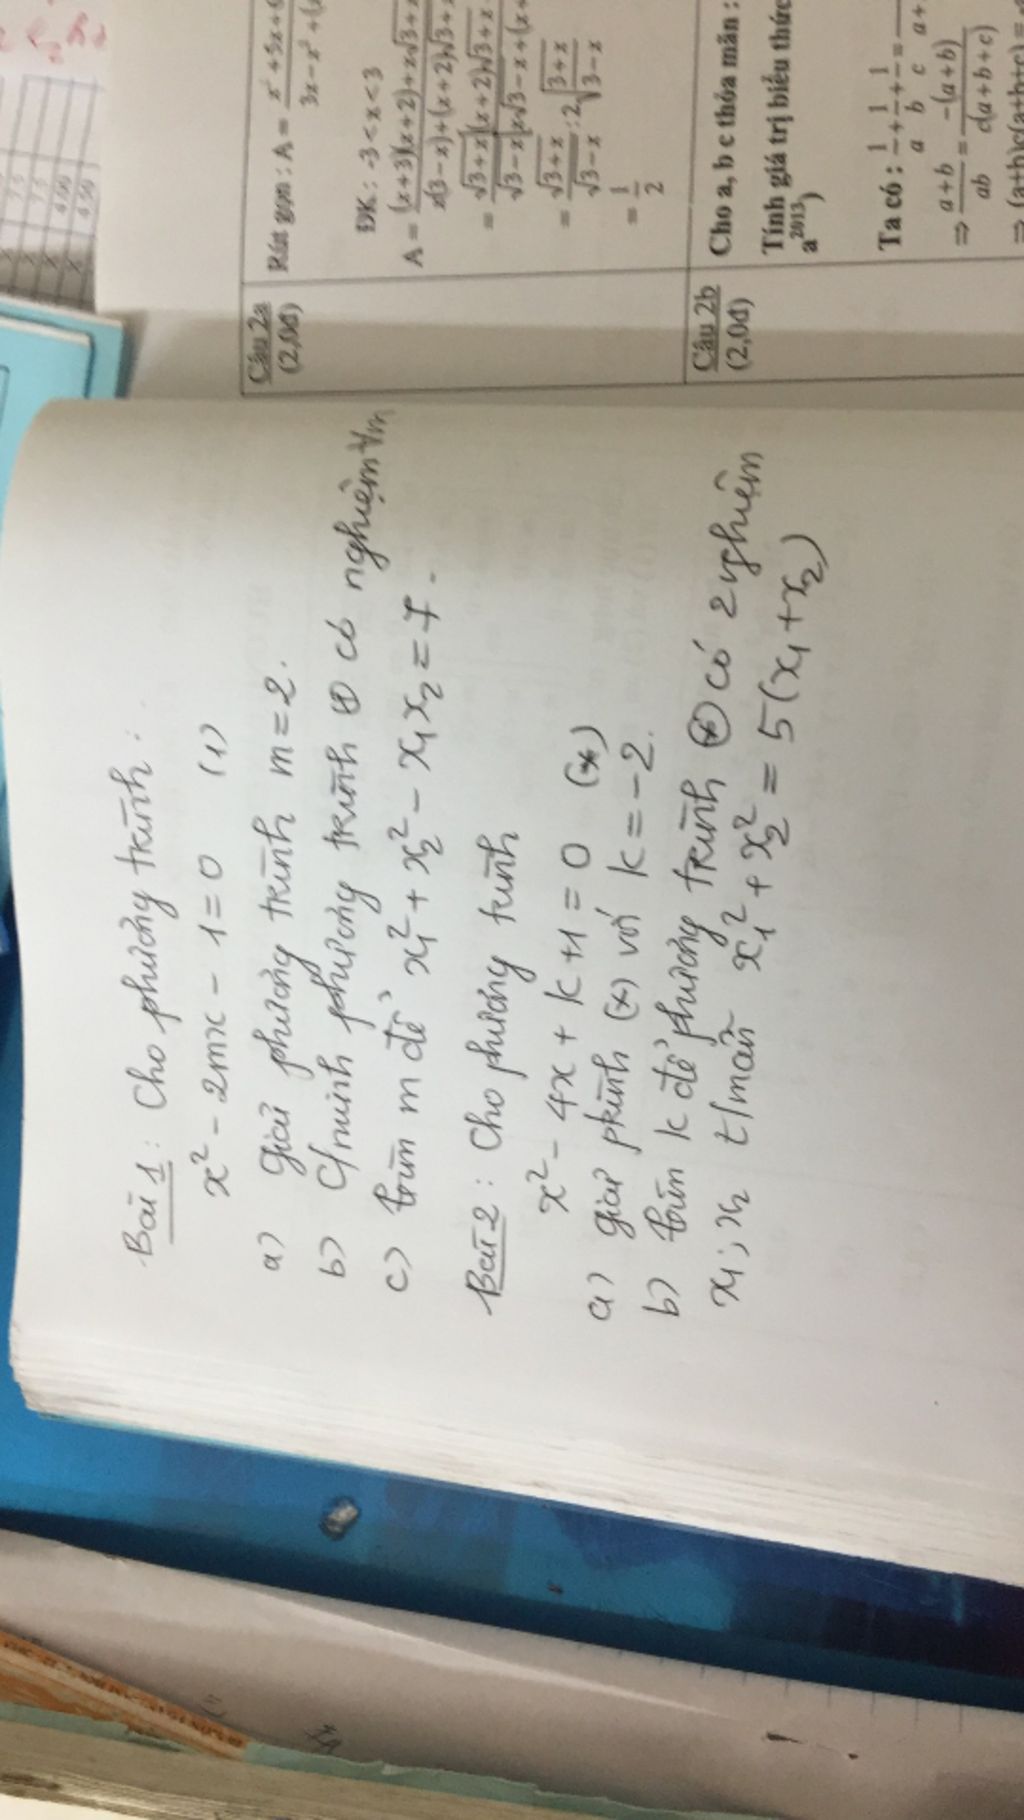 Bài 1 : Cho phương trình :
x² - 2mx - 1 = 0 (1)
a) giải phương trình m = 2.
b) C/minh phương trình ① có nghiệm ∀m
c) tìm m để x₁² + x₂² - x₁x₂ = 7.
Bài 2 : Cho phương trình
x² - 4x + k + 1 = 0 (*)
a) giải ptrình (*) với k = -2.
b) tìm k để phương trình (*) có 2 nghiệm
x₁ ; x₂ t/mãn x₁² + x₂² = 5(x₁ + x₂)
Câu 2a
(2,0đ)
Rút gọn : A =
3x - x² +
ĐK : -3 < x < 3
A = (x+3)(x+2) + x√3+x
x(3-x) + (x+2)√3+x
= √3+x (x+2)√3+x
√3-x x√3-x + (x+
= √3+x : 2√3+x
√3-x √3-x
= 1/2
Câu 2b
(2,0đ)
Cho a, b c thỏa mãn :
Tính giá trị biểu thức
a²⁰¹³)
Ta có : 1/a + 1/b + 1/c =
⇒ (a+b)/ab = -(a+b)/c(a+b+c)